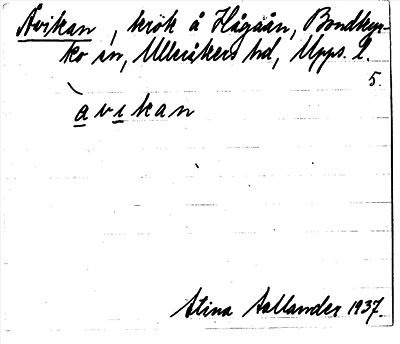 Åvikan, krök å Hågaån, Bondkyr-
ko sn, Ulleråkers hd, Upps. l.
5.
àvikan
Stina Sallander 1937.